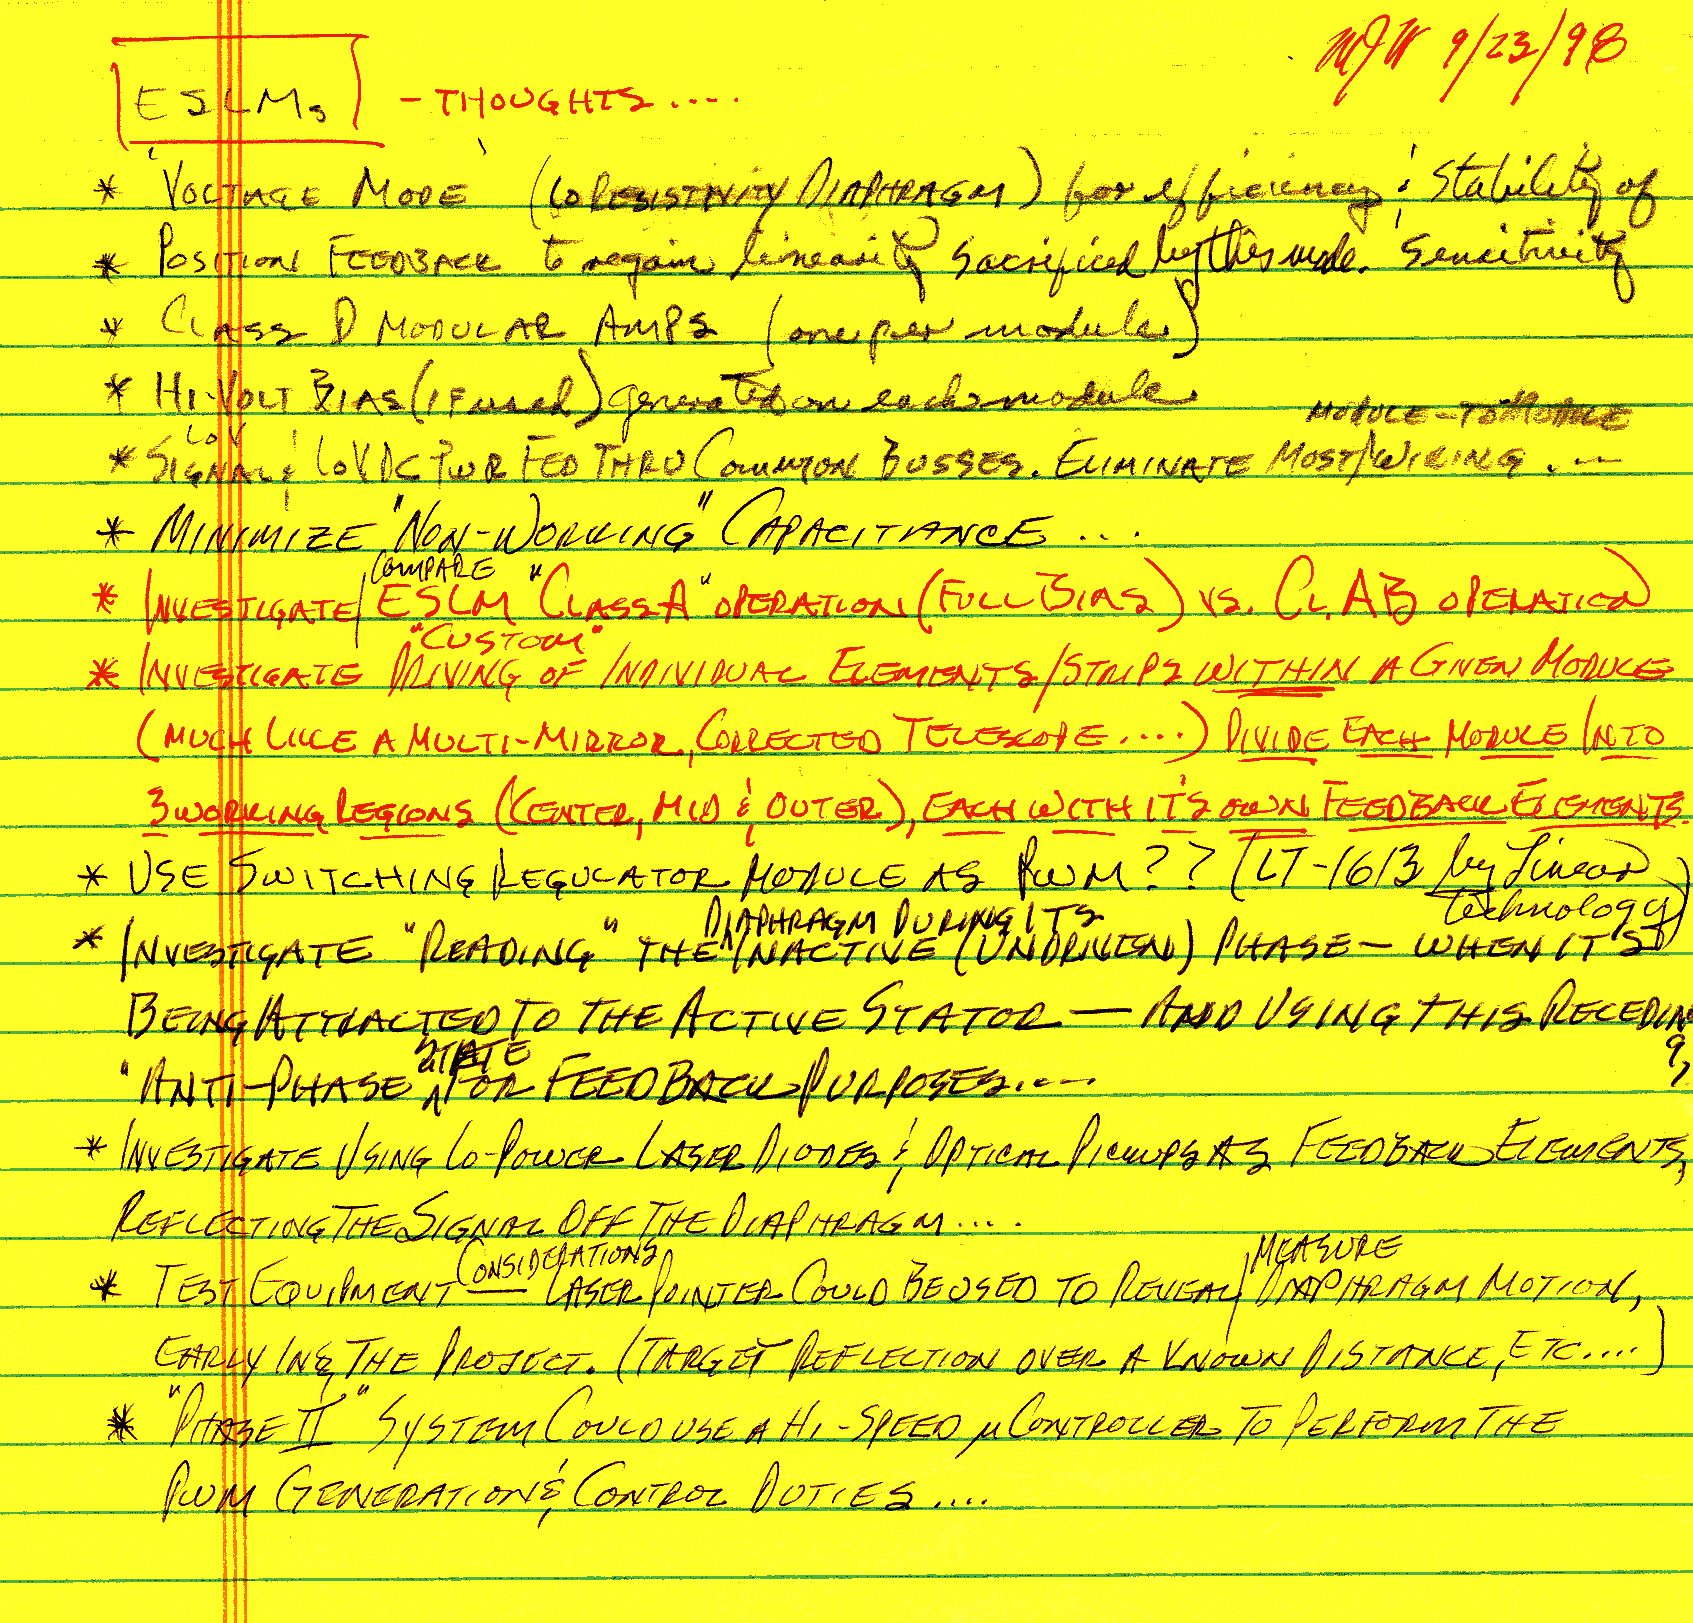 MJW 9/23/98
ESLMs - THOUGHTS ....
* 'VOLTAGE MODE' (LO RESISTIVITY DIAPHRAGM) for efficiency & stability of
* POSITION FEEDBACK to regain linearity sacrificed by this mode. Sensitivity
* CLASS D MODULAR AMPS (one per module)
* HI-VOLT BIAS (IF used) generated on each module
MODULE-TO-MODULE
LoV
* SIGNAL & LoV DC PWR FED THRU COMMON BUSSES. ELIMINATE MOST WIRING ....
* MINIMIZE "NON-WORKING" CAPACITANCE ...
COMPARE
* INVESTIGATE ESLM "CLASS A" OPERATION (FULL BIAS) VS. CL. AB OPERATION
"CUSTOM"
* INVESTIGATE DRIVING OF INDIVIDUAL ELEMENTS/STRIPS WITHIN A GIVEN MODULE
(MUCH LIKE A MULTI-MIRROR, CORRECTED TELESCOPE ....) DIVIDE EACH MODULE INTO
3 WORKING REGIONS (CENTER, MID & OUTER), EACH WITH IT'S OWN FEEDBACK ELEMENTS.
* USE SWITCHING REGULATOR MODULE AS PWM?? (LT-1613 by Linear
technology)
DIAPHRAGM DURING ITS
* INVESTIGATE "READING" THE INACTIVE (UNDRIVEN) PHASE — WHEN IT'S
BEING ATTRACTED TO THE ACTIVE STATOR — AND USING THIS RECEDING,
STATE
"ANTI-PHASE FOR FEEDBACK PURPOSES....
* INVESTIGATE USING LO-POWER LASER DIODES & OPTICAL PICKUPS AS FEEDBACK ELEMENTS,
REFLECTING THE SIGNAL OFF THE DIAPHRAGM ....
CONSIDERATIONS MEASURE
* TEST EQUIPMENT — LASER POINTER COULD BE USED TO REVEAL/ DIAPHRAGM MOTION,
EARLY IN THE PROJECT. (TARGET REFLECTION OVER A KNOWN DISTANCE, ETC....)
* "PHASE II" SYSTEM COULD USE A HI-SPEED µCONTROLLER TO PERFORM THE
PWM GENERATION & CONTROL DUTIES ....